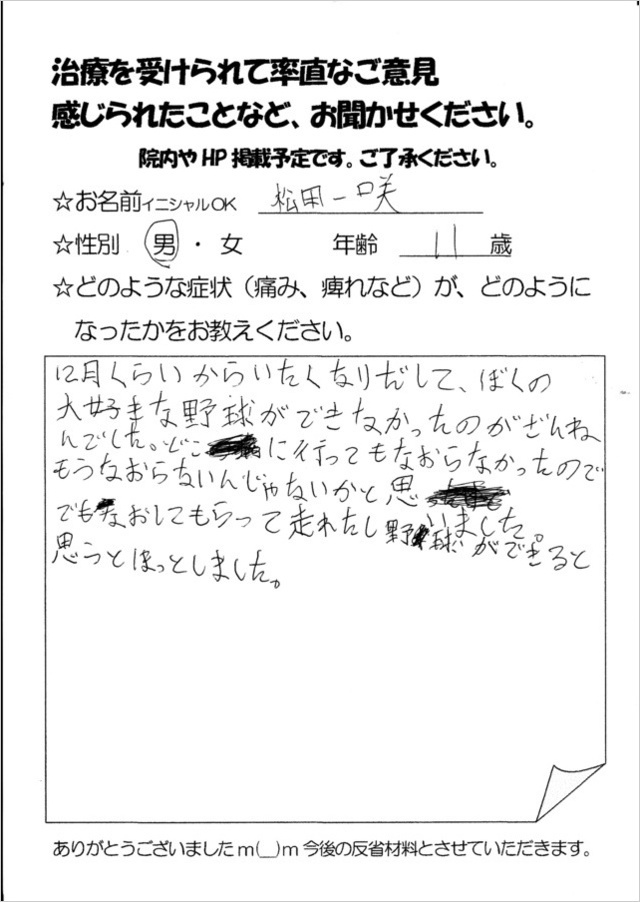 治療を受けられて率直なご意見
感じられたことなど、お聞かせください。
院内やHP掲載予定です。ご了承ください。
☆お名前イニシャルOK 松田一咲
☆性別 男・女 年齢 11 歳
☆どのような症状（痛み、痺れなど）が、どのように
なったかをお教えください。
12月くらいからいたくなりだして、ぼくの
大好きな野球ができなかったのがざんね
んでした。どこに行ってもなおらなかったので
もうなおらないんじゃないかと思
いました。
でもなおしてもらって走れたし野球ができると
思うとほっとしました。
ありがとうございましたm(__)m今後の反省材料とさせていただきます。